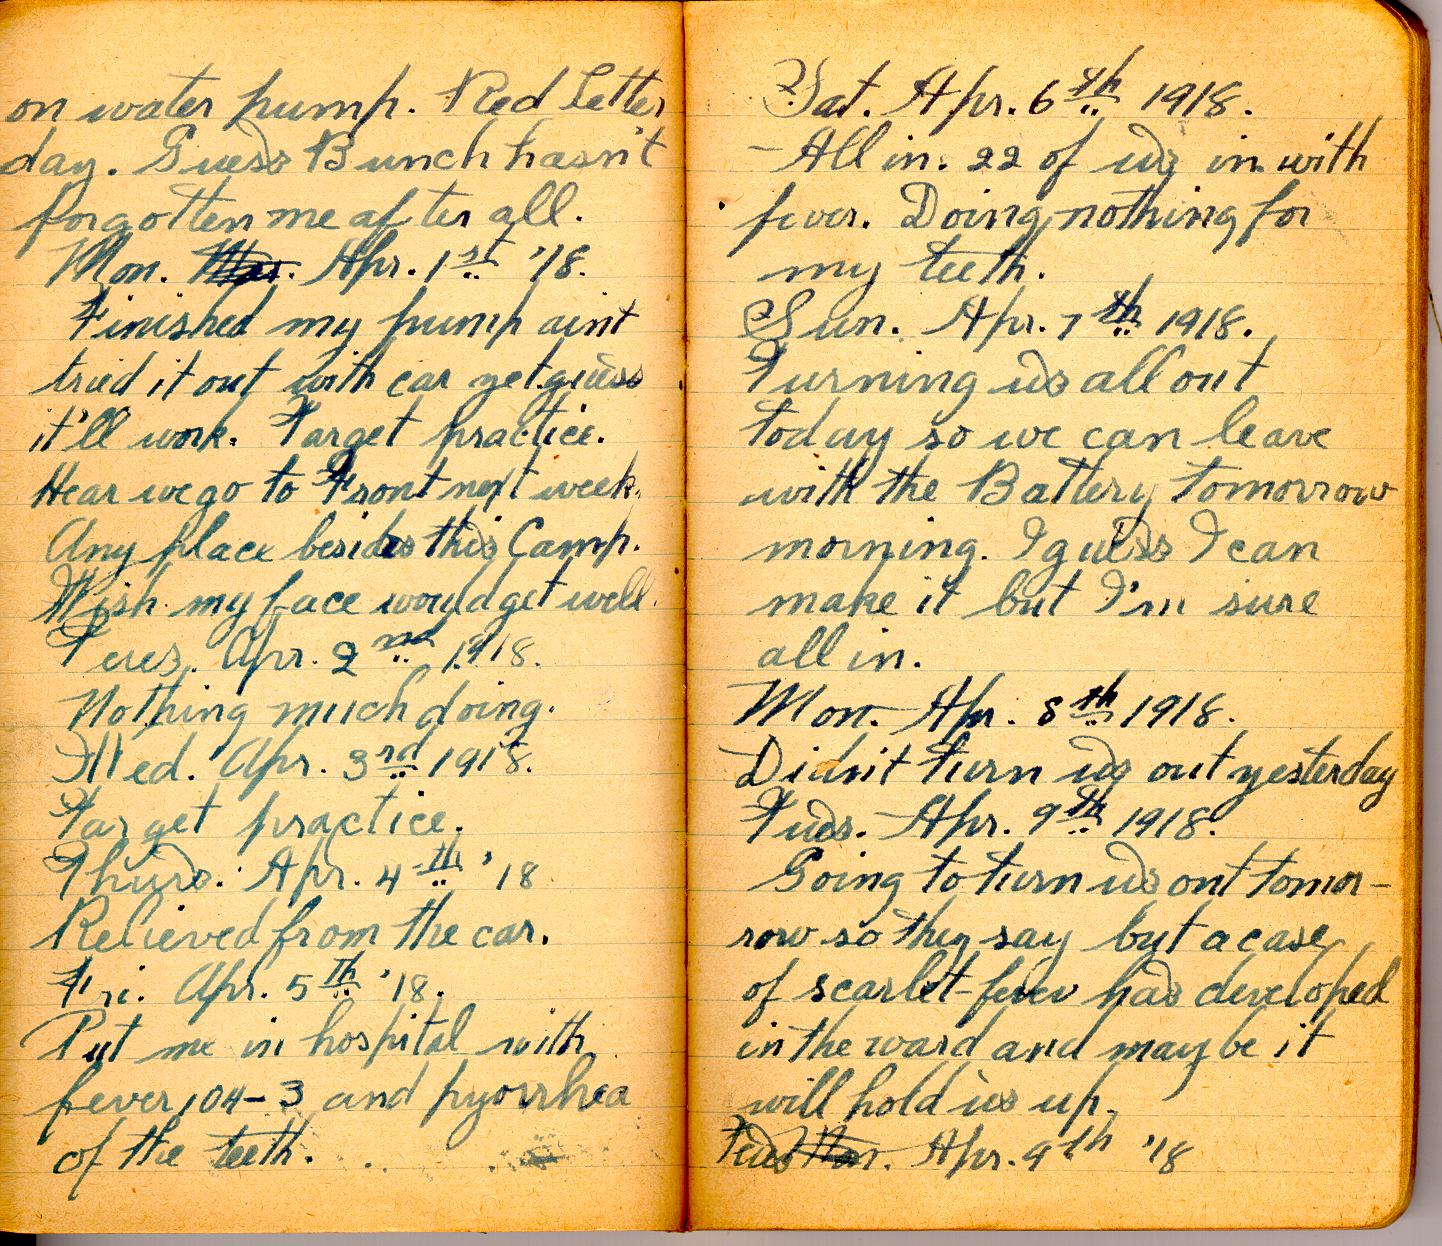 on water pump. Red Letter
day. Guess Bunch hasn't
forgotten me after all.
Mon. Apr. 1st '18.
Finished my pump ain't
tried it out with car yet guess
it'll work. Target practice.
Hear we go to Front next week.
Any place besides this Camp.
Wish my face would get well.
Tues. Apr. 2nd 1918.
Nothing much doing.
Wed. Apr. 3rd 1918.
Target practice.
Thurs. Apr. 4th '18
Relieved from the car.
Fri. Apr. 5th '18.
Put me in hospital with
fever 104-3 and pyorrhea
of the teeth.
Sat. Apr. 6th 1918.
- All in. 22 of us in with
fever. Doing nothing for
my teeth.
Sun. Apr. 7th 1918.
Turning us all out
today so we can leave
with the Battery tomorrow
morning. I guess I can
make it but I'm sure
all in.
Mon. Apr. 8th 1918.
Didn't turn us out yesterday
Tues. Apr. 9th 1918.
Going to turn us out tomor-
row so they say but a case
of scarlet-fever has developed
in the ward and maybe it
will hold us up.
Tues Apr. 9th '18